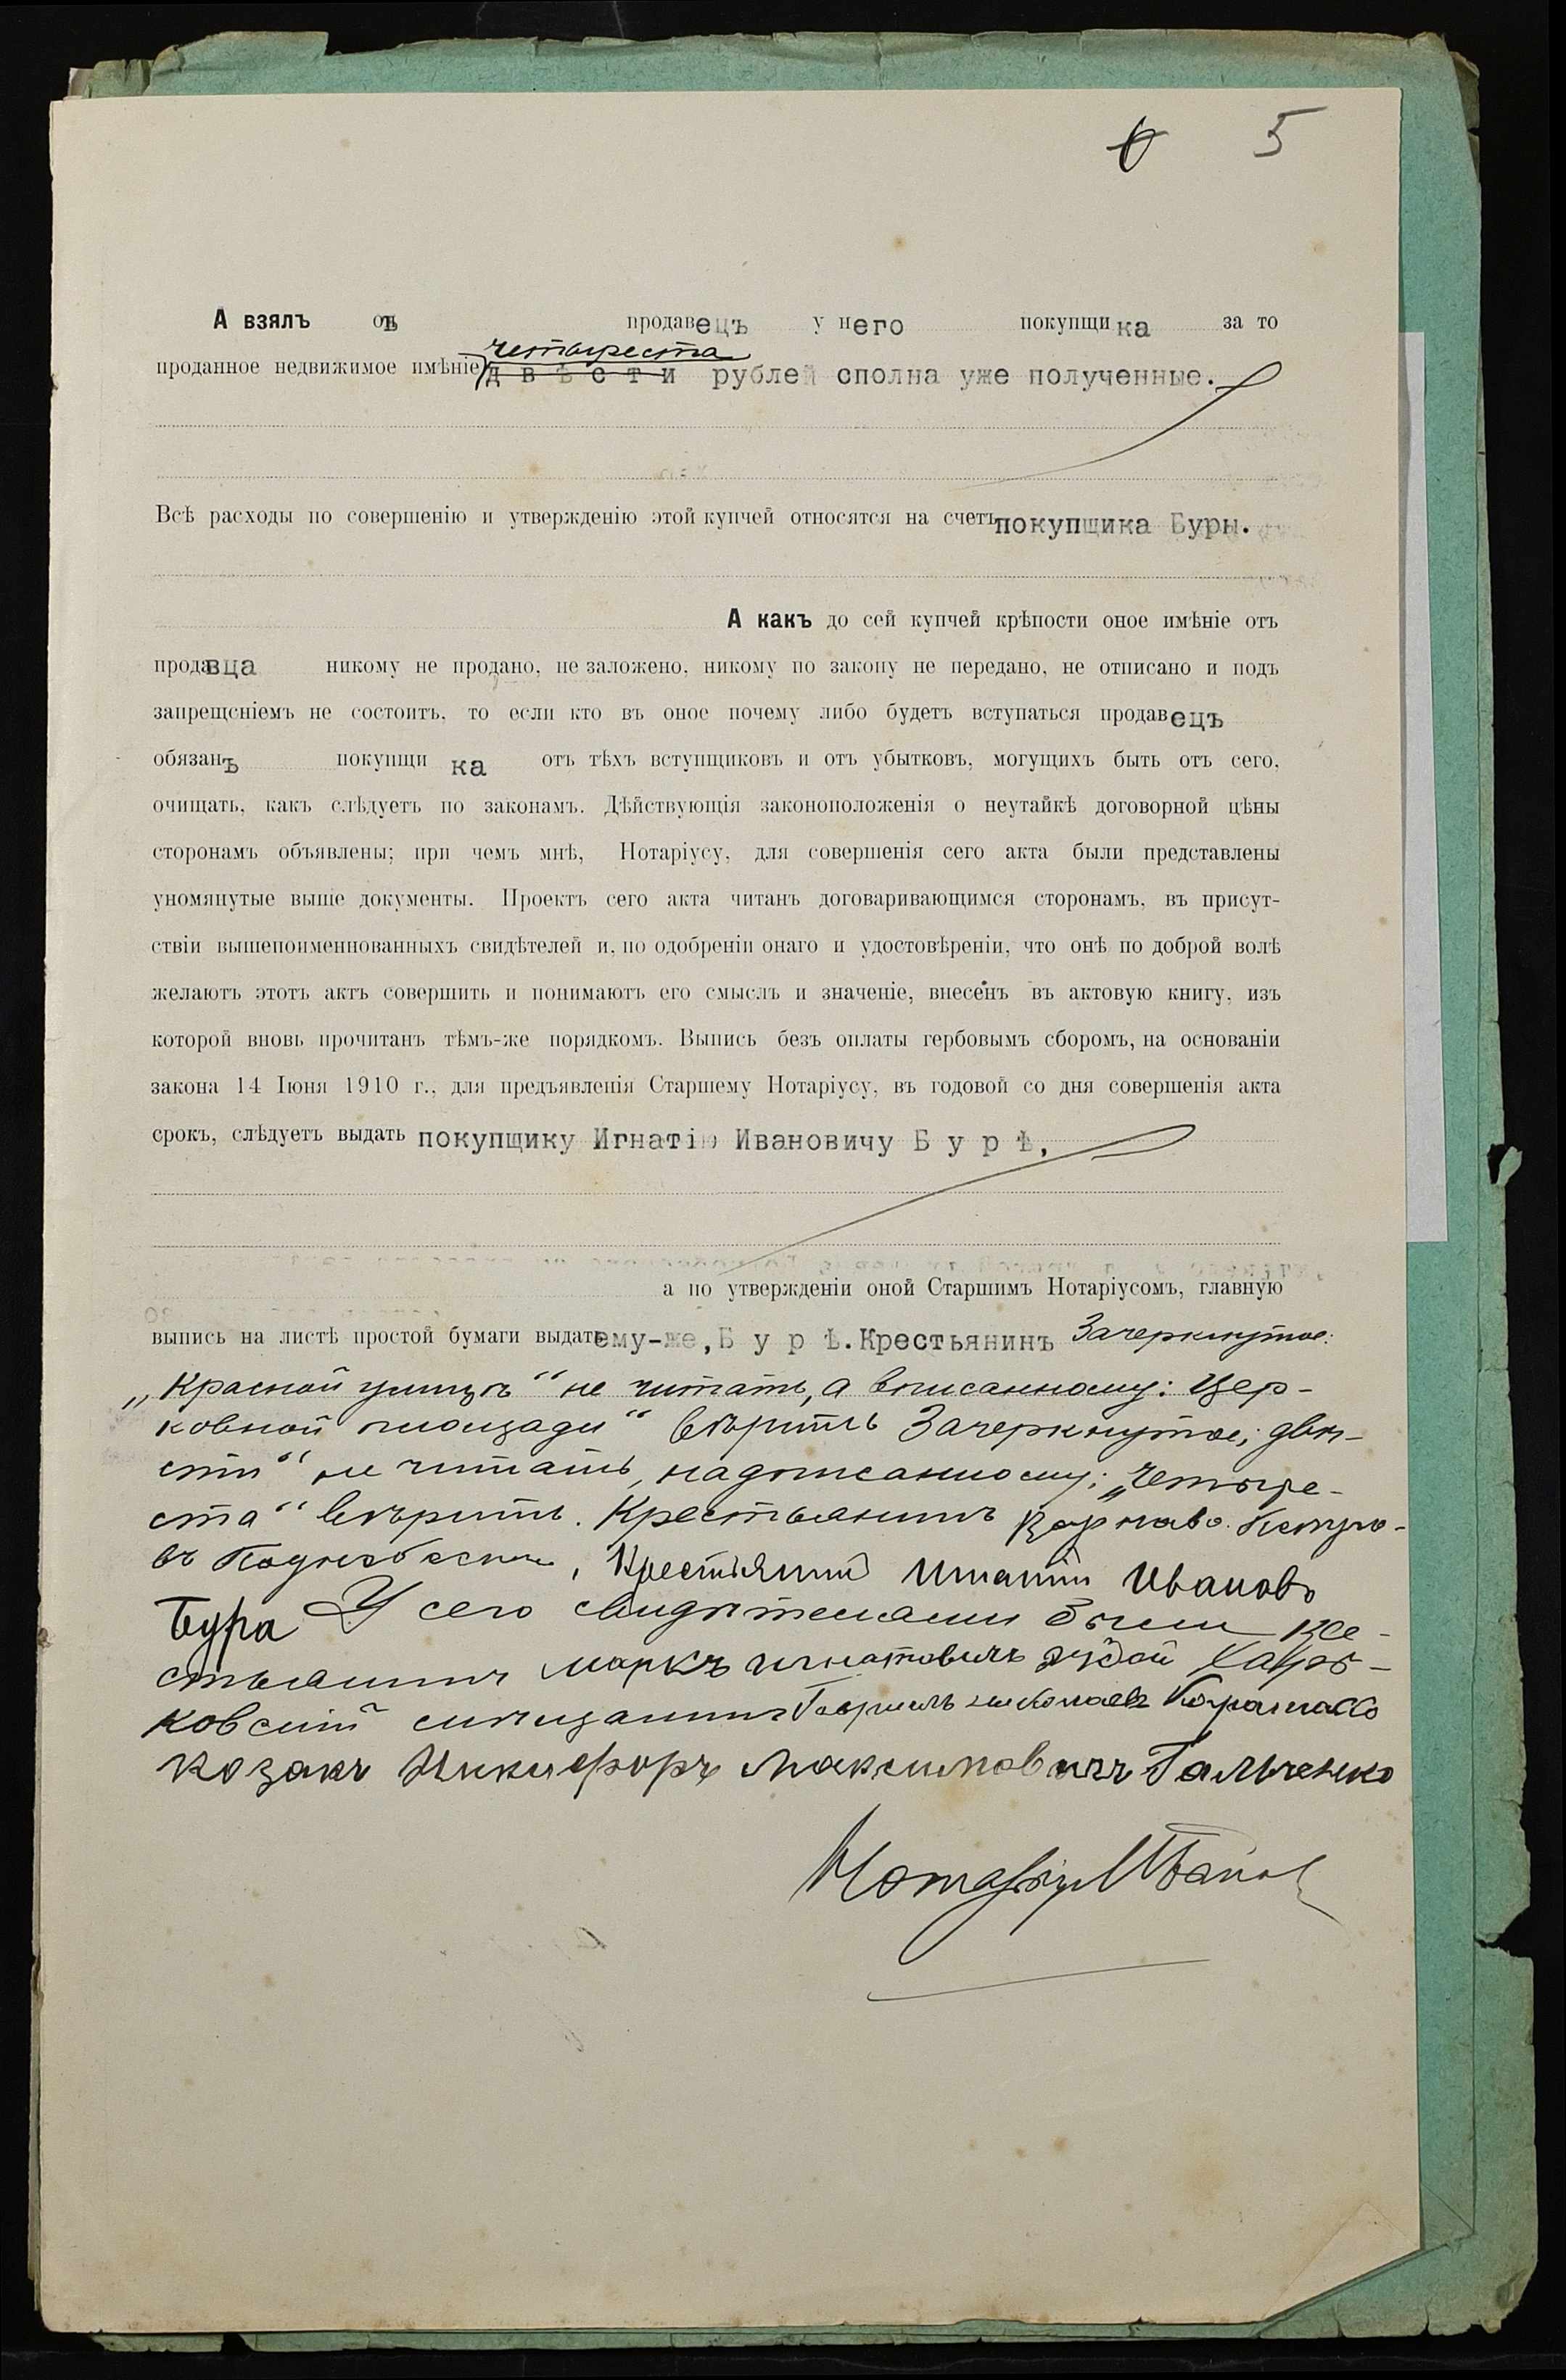 6 5
А взялъ онъ продавецъ у него покупщика за то
четыреста
проданное недвижимое имѣніе двѣсти рублей сполна уже полученные.
Всѣ расходы по совершенію и утвержденію этой купчей относятся на счетъ покупщика Буры.
А какъ до сей купчей крѣпости оное имѣніе отъ
продавца никому не продано, не заложено, никому по закону не передано, не отписано и подъ
запрещеніемъ не состоитъ, то если кто въ оное почему либо будетъ вступаться продавецъ
обязанъ покупщика отъ тѣхъ вступщиковъ и отъ убытковъ, могущихъ быть отъ сего,
очищать, какъ слѣдуетъ по законамъ. Дѣйствующія законоположенія о неутайкѣ договорной цѣны
сторонамъ объявлены; при чемъ мнѣ, Нотаріусу, для совершенія сего акта были представлены
упомянутые выше документы. Проектъ сего акта читанъ договаривающимся сторонамъ, въ присут-
ствіи вышепоименнованныхъ свидѣтелей и, по одобреніи онаго и удостовѣреніи, что онѣ по доброй волѣ
желаютъ этотъ актъ совершить и понимаютъ его смыслъ и значеніе, внесенъ въ актовую книгу, изъ
которой вновь прочитанъ тѣмъ-же порядкомъ. Выпись безъ оплаты гербовымъ сборомъ, на основаніи
закона 14 Іюня 1910 г., для предъявленія Старшему Нотаріусу, въ годовой со дня совершенія акта
срокъ, слѣдуетъ выдать покупщику Игнатію Ивановичу Б у р ѣ,
а по утвержденіи оной Старшимъ Нотаріусомъ, главную
выпись на листѣ простой бумаги выдать ему-же, Б у р ѣ. Крестьянинъ Зачеркнутое:
„Красной улицѣ“ не читать, а вписанному: Цер-
ковной площади“ вѣрить Зачеркнутое: двѣ-
сти“ не читать, надписанному: „четыре-
ста“ вѣрить. Крестьянинъ
въ , Крестьянинъ Игнатій Ивановъ
Бура У сего свидѣтелями были кре-
стьянинъ Маркъ Игнатовичъ Харь-
ковскій мѣщанинъ Гавріилъ Николаевъ
козакъ Никифоръ Максимовичъ Гальченко
Нотаріусъ